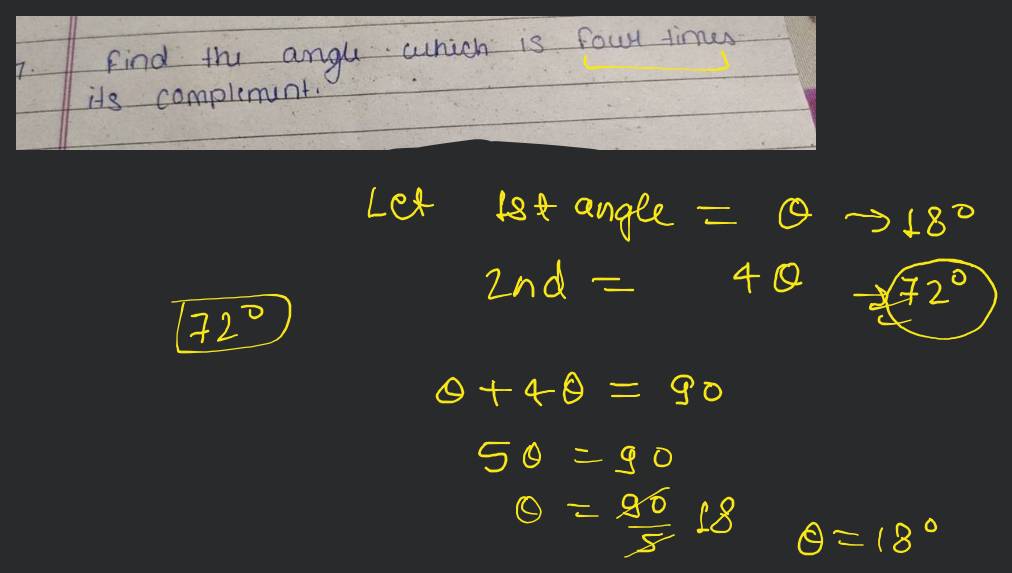 7. Find the angle which is four times
its complement.
Let 1st angle = θ → 18°
2nd = 4θ → 72°
72°
θ + 4θ = 90
5θ = 90
θ = 90/5 18 θ = 18°